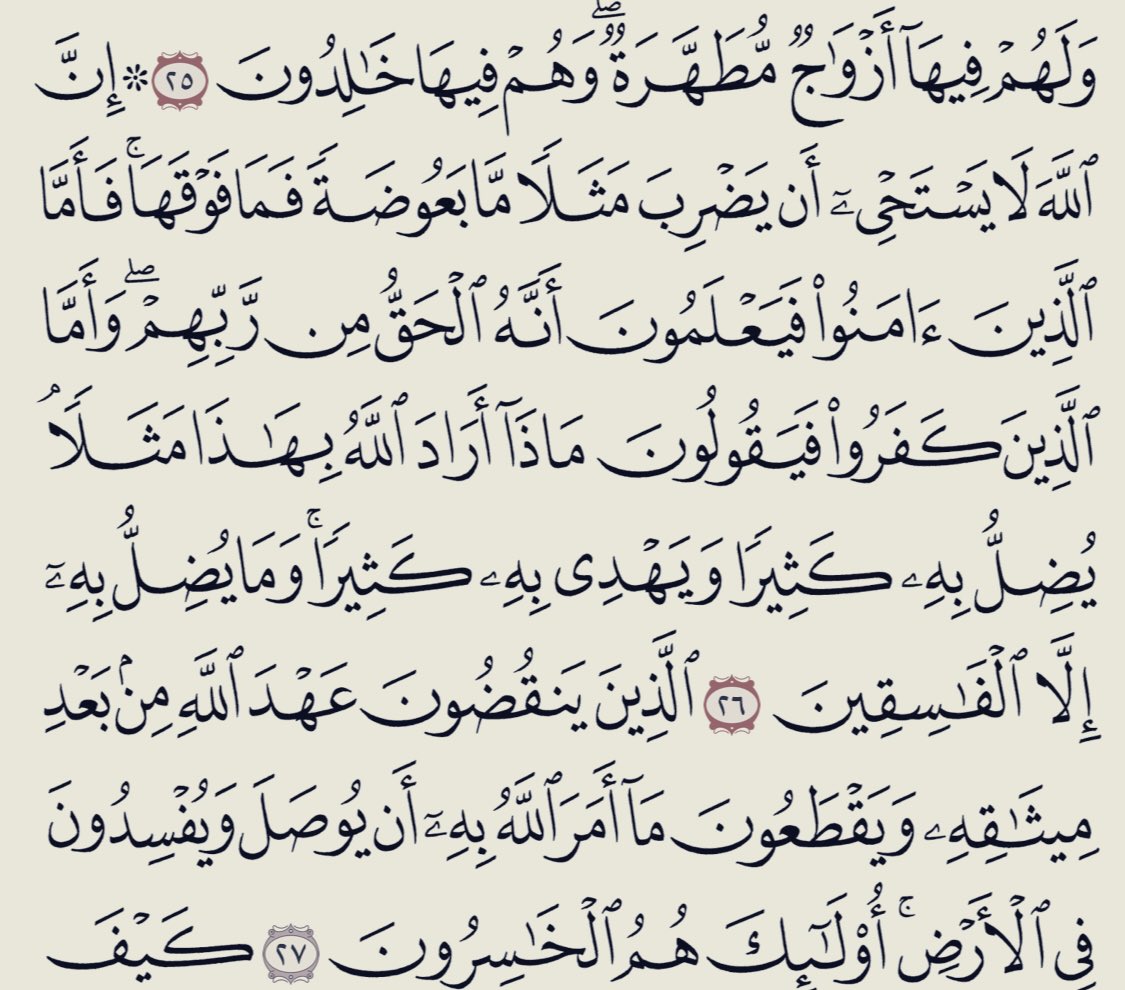 وَلَهُمۡ فِيهَآ أَزۡوَٰجٞ مُّطَهَّرَةٞۖ وَهُمۡ فِيهَا خَٰلِدُونَ ٢٥ ۞ إِنَّ
ٱللَّهَ لَا يَسۡتَحۡيِۦٓ أَن يَضۡرِبَ مَثَلٗا مَّا بَعُوضَةٗ فَمَا فَوۡقَهَاۚ فَأَمَّا
ٱلَّذِينَ ءَامَنُواْ فَيَعۡلَمُونَ أَنَّهُ ٱلۡحَقُّ مِن رَّبِّهِمۡۖ وَأَمَّا
ٱلَّذِينَ كَفَرُواْ فَيَقُولُونَ مَاذَآ أَرَادَ ٱللَّهُ بِهَٰذَا مَثَلٗاۘ
يُضِلُّ بِهِۦ كَثِيرٗا وَيَهۡدِي بِهِۦ كَثِيرٗاۚ وَمَا يُضِلُّ بِهِۦٓ
إِلَّا ٱلۡفَٰسِقِينَ ٢٦ ٱلَّذِينَ يَنقُضُونَ عَهۡدَ ٱللَّهِ مِنۢ بَعۡدِ
مِيثَٰقِهِۦ وَيَقۡطَعُونَ مَآ أَمَرَ ٱللَّهُ بِهِۦٓ أَن يُوصَلَ وَيُفۡسِدُونَ
فِي ٱلۡأَرۡضِۚ أُوْلَٰٓئِكَ هُمُ ٱلۡخَٰسِرُونَ ٢٧ كَيۡفَ